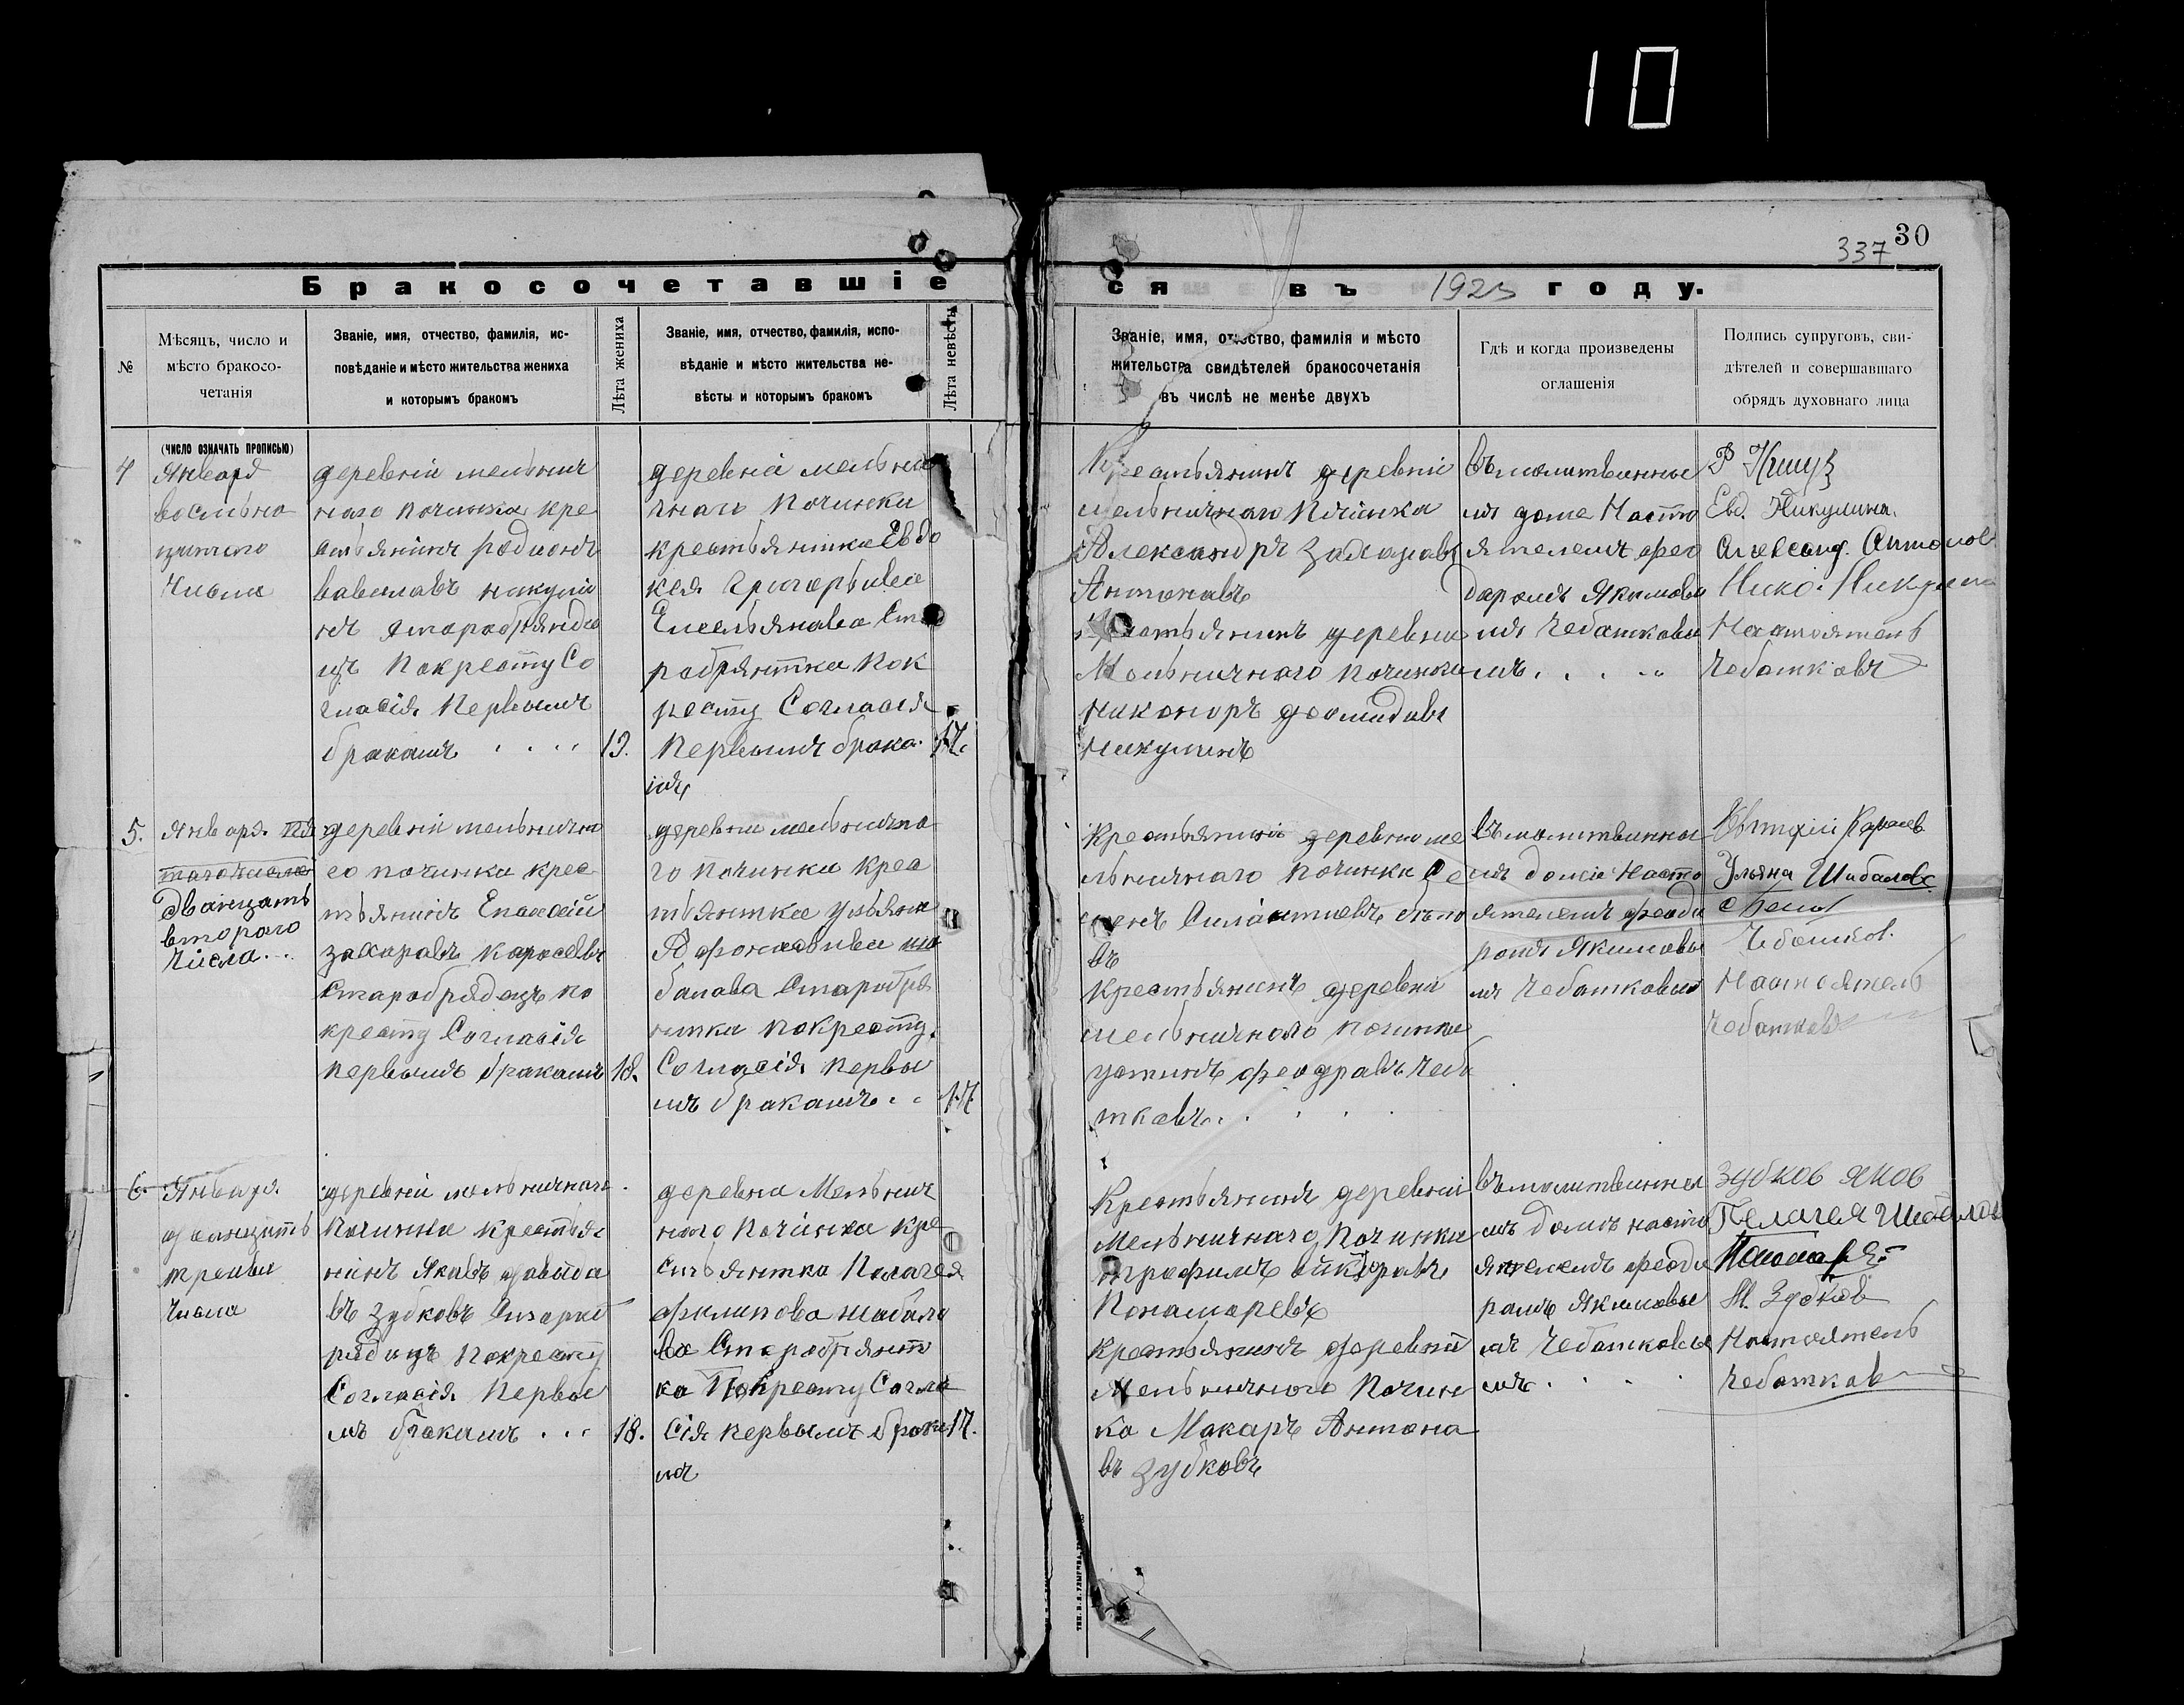 10
30
337
Бракосочетавшіе
ся въ 1923 году.
№
Мѣсяцъ, число и
мѣсто бракосо-
четанія
Званіе, имя, отчество, фамилія, ис-
повѣданіе и мѣсто жительства жениха
и которымъ бракомъ
Лѣта жениха
Званіе, имя, отчество, фамилія, испо-
вѣданіе и мѣсто жительства не-
вѣсты и которымъ бракомъ
Лѣта невѣсты
Званіе, имя, отчество, фамилія и мѣсто
жительства свидѣтелей бракосочетанія
въ числѣ не менѣе двухъ
Гдѣ и когда произведены
оглашенія
Подпись супруговъ, сви-
дѣтелей и совершавшаго
обрядъ духовнаго лица
(число означать прописью)
4
Января
восмьна
цатого
Числа
деревніи мельнич
наго починка кре
стьянинъ родионъ
вавилавъ никули
нъ старобрядо
цъ Покресту Со
гласія Первымъ
бракамъ
19.
деревніа мельни
чнаго Починка
крестьянтка Евдо
кея Григорьивна
Емельянава Ста
робрянтка Пок
ресту Согласія
Первымъ брака
мъ
17.
Крестьянинъ деревніи
мельничнаго Починка
Александръ Захаравъ
Антонавъ
Крестьянинъ деревни
Мельничнаго починка
Никоноръ диомидавъ
Никулинъ
Въмолитвинно
мъ доме Насто
ятелемъ фео
даромъ Якимови
мъ Чебатковы
мъ
Р Никул
Евд. Никулина.
Александ. Антонов
Нико. Никулин
Настоятель
Чебатковъ
5.
Января. пя
таго числа
Дванцать
второго
Числа...
деревніи мельнично
го починка крес
тьянинъ Епасей
захаравъ Каросевъ
Старобрядецъ по
кресту Согласія
первымъ бракамъ
18.
деревни мельнично
го починка крес
тьянтка ульяна
Афонасьивна ша
балава Старобря
нтка Покресту.
Согласія Первы
мъ бракамъ
17
Крестьянинъ деревни ме
льничнаго починка Се
менъ Силантиевъ бѣло
въ
Крестьянинъ деревни
мельничного починка
устинъ феодравъ Чеба
тковъ
Въмолитвинно
мъ доміе Насто
ятелемъ феода
ромъ Якимовы
мъ Чебатковым
Каросев
Ульяна Шабалова
Белов
Чеботков.
Настоятель
Чебатков
6.
Января.
дванцать
третьи
Числа
деревніи мельничнаго
Починка крестья
нинъ Якавъ давыда
въ Зубковъ Старооб
рядицъ Покресту
Согласія Первы
мъ бракамъ
18.
деревна Мельнич
ного Починка кре
стьянтка Пелагея
филипова шабала
ва Старобрянт
ка Покресту Согла
сія первымъ брака
мъ
17.
Крестьянинъ деревніи
Мельничнаго Починка
трофимъ
Понамаревъ
Крестьянинъ деревни
Мельничного Почин
ка Макаръ Антона
въ Зубковъ
Въмолитвинно
мъ домъ насто
ятелемъ феода
рамъ Якимовы
мъ Чебатковы
мъ
Зубков Яков
Пелагея Шабалов
Пономарев
М. Зубков
Настоятель
Чебатков